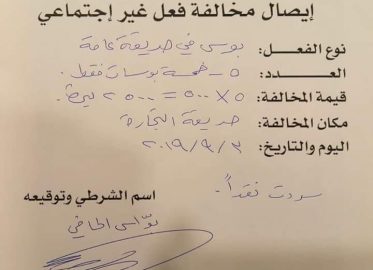 إيصال مخالفة فعل غير إجتماعي
نوع الفعل: بوس في حديقة عامة
العدد: ٥ - خمسة بوسات فقط.
قيمة المخالفة: ٥ × ٥٠٠ = ٢٥٠٠ ليرة
مكان المخالفة: حديقة التجارة
اليوم والتاريخ: ٢٠١٩/٩/٣
سددت نقداً.
اسم الشرطي وتوقيعه
بوّاس الحافي